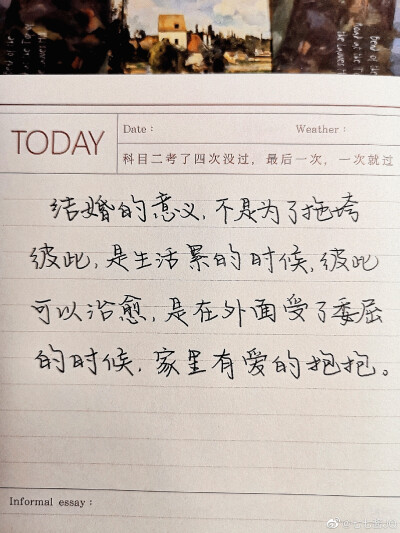 TODAY
Date：
Weather：
科目二考了四次没过，最后一次，一次就过
结婚的意义，不是为了拖垮
彼此，是生活累的时候，彼此
可以治愈，是在外面受了委屈
的时候，家里有爱的抱抱。
Informal essay：